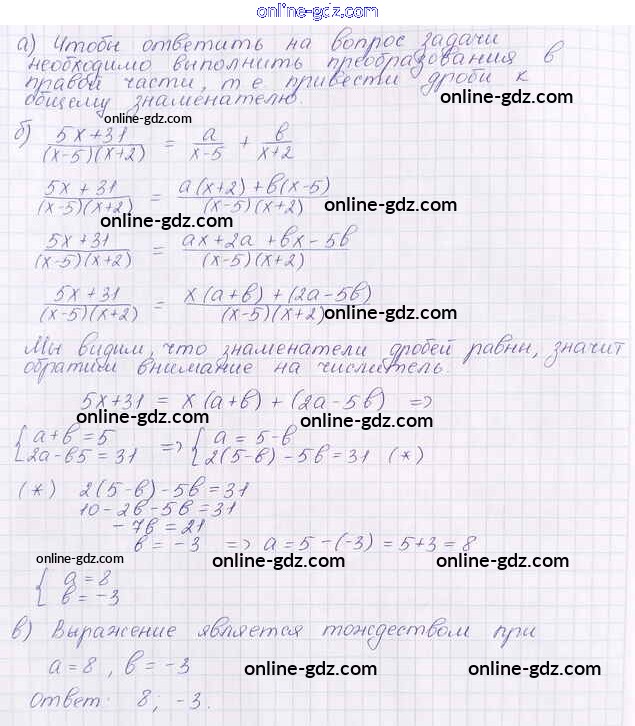 online-gdz.com
а) Чтобы ответить на вопрос задачи
необходимо выполнить преобразования в
правой части, т е привести дроби к
общему знаменателю. online-gdz.com
online-gdz.com
б) (5x+31)/((x-5)(x+2)) = a/(x-5) + в/(x+2)
(5x+31)/((x-5)(x+2)) = (a(x+2)+в(x-5))/((x-5)(x+2)) online-gdz.com
online-gdz.com
(5x+31)/((x-5)(x+2)) = (ax+2a+вx-5в)/((x-5)(x+2))
(5x+31)/((x-5)(x+2)) = (x(a+в)+(2a-5в))/((x-5)(x+2)) online-gdz.com
Мы видим, что знаменатели дробей равны, значит
обратим внимание на числитель.
5x+31 = x(a+в)+(2a-5в) =>
online-gdz.com online-gdz.com
{ a+в=5 => { a=5-в
{ 2a-в5=31 { 2(5-в)-5в=31 (*)
(*) 2(5-в)-5в=31
10-2в-5в=31
-7в=21
в=-3 => a=5-(-3)=5+3=8
online-gdz.com online-gdz.com online-gdz.com
{ a=8
{ в=-3
в) Выражение является тождеством при
a=8, в=-3 online-gdz.com online-gdz.com
Ответ: 8; -3.